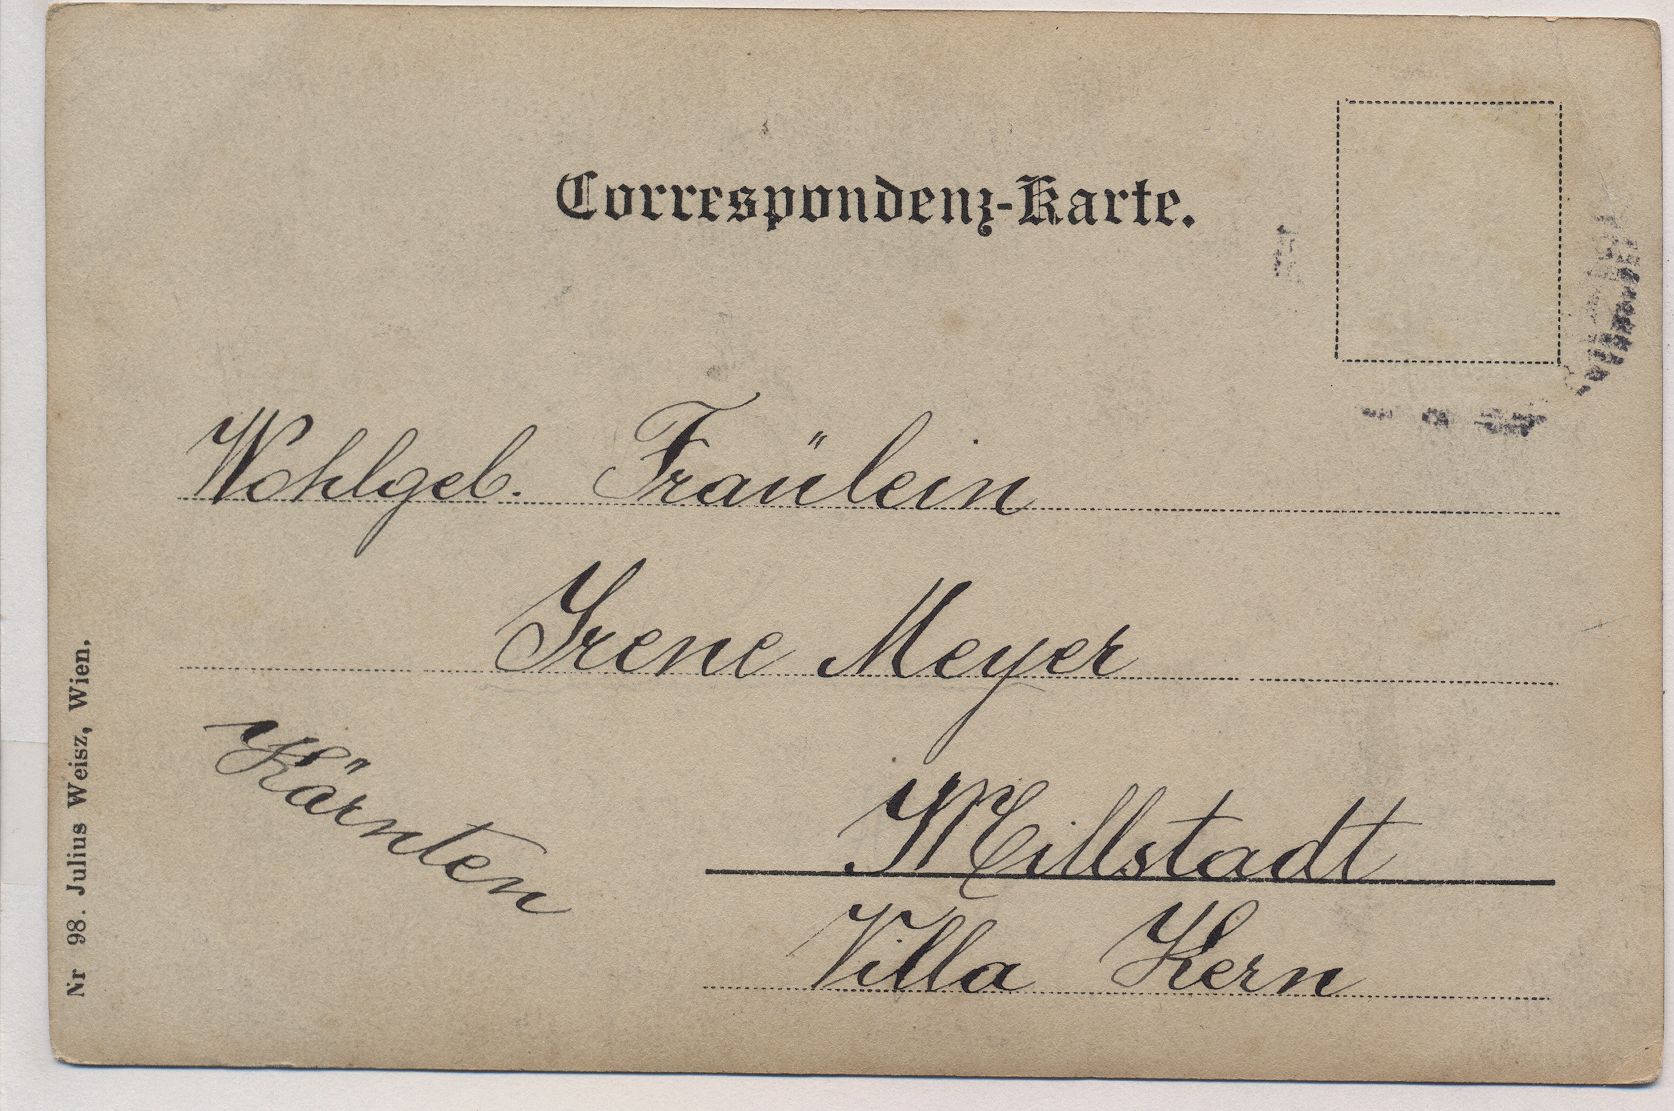 Correspondenz-Karte.
Wohlgeb. Fräulein
Irene Meyer
Kärnten
Millstadt
Villa Kern
Nr 98. Julius Weisz, Wien.